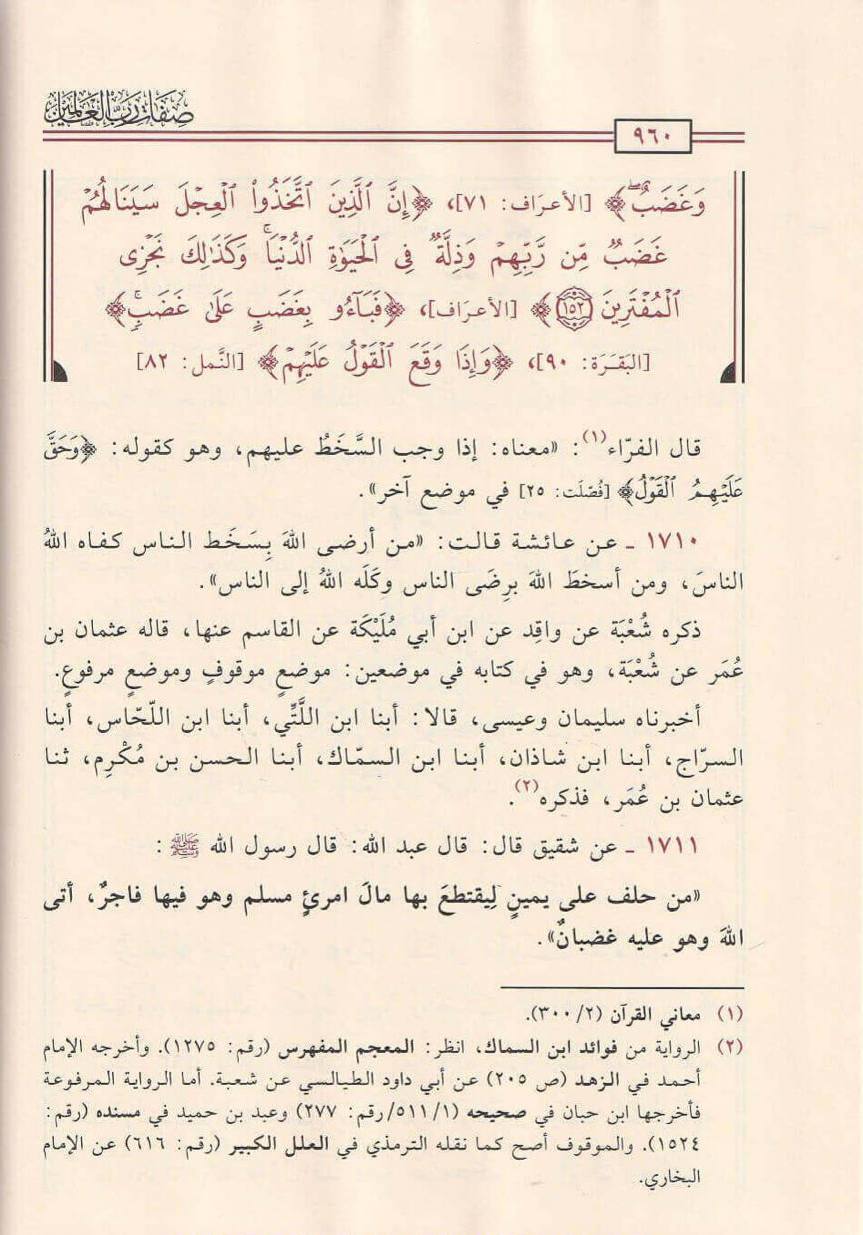 صفات رب العالمين
٩٦٠
وَغَضَبٌ﴾ [الأعرَاف: ٧١]، ﴿إِنَّ ٱلَّذِينَ ٱتَّخَذُواْ ٱلۡعِجۡلَ سَيَنَالُهُمۡ
غَضَبٞ مِّن رَّبِّهِمۡ وَذِلَّةٞ فِي ٱلۡحَيَوٰةِ ٱلدُّنۡيَاۚ وَكَذَٰلِكَ نَجۡزِي
ٱلۡمُفۡتَرِينَ ١٥٢﴾ [الأعرَاف]، ﴿فَبَآءُو بِغَضَبٍ عَلَىٰ غَضَبٖۚ﴾
[البَقَرَة: ٩٠]، ﴿وَإِذَا وَقَعَ ٱلۡقَوۡلُ عَلَيۡهِمۡ﴾ [النَّمل: ٨٢]
قال الفرّاء(١): «معناه: إذا وجب السَّخَطُ عليهم، وهو كقوله: ﴿وَحَقَّ
عَلَيۡهِمُ ٱلۡقَوۡلُ﴾ [فُصّلَت: ٢٥] في موضع آخر».
١٧١٠ ـ عن عائشة قالت: «من أرضى اللهَ بِسَخَط الناس كفاه اللهُ
الناسَ، ومن أسخطَ اللهَ برِضَى الناس وكَلَه اللهُ إلى الناس».
ذكره شُعْبَة عن واقِد عن ابن أبي مُلَيْكَة عن القاسم عنها، قاله عثمان بن
عُمَر عن شُعْبَة، وهو في كتابه في موضعين: موضعٍ موقوفٍ وموضعٍ مرفوعٍ.
أخبرناه سليمان وعيسى، قالا: أبنا ابن اللَّتِّي، أبنا ابن اللّحّاس، أبنا
السرّاج، أبنا ابن شاذان، أبنا ابن السمّاك، أبنا الحسن بن مُكْرِم، ثنا
عثمان بن عُمَر، فذكره(٢).
١٧١١ ـ عن شقيق قال: قال عبد الله: قال رسول الله ﷺ:
«من حلف على يمينٍ لِيقتطعَ بها مالَ امرئٍ مسلم وهو فيها فاجرٌ، أتى
اللهَ وهو عليه غضبانٌ».
(١) معاني القرآن (٣٠٠/٢).
(٢) الرواية من فوائد ابن السماك، انظر: المعجم المفهرس (رقم: ١٢٧٥). وأخرجه الإمام
أحمد في الزهد (ص ٢٠٥) عن أبي داود الطيالسي عن شعبة. أما الرواية المرفوعة
فأخرجها ابن حبان في صحيحه (٥١١/١/رقم: ٢٧٧) وعبد بن حميد في مسنده (رقم:
١٥٢٤). والموقوف أصح كما نقله الترمذي في العلل الكبير (رقم: ٦١٦) عن الإمام
البخاري.